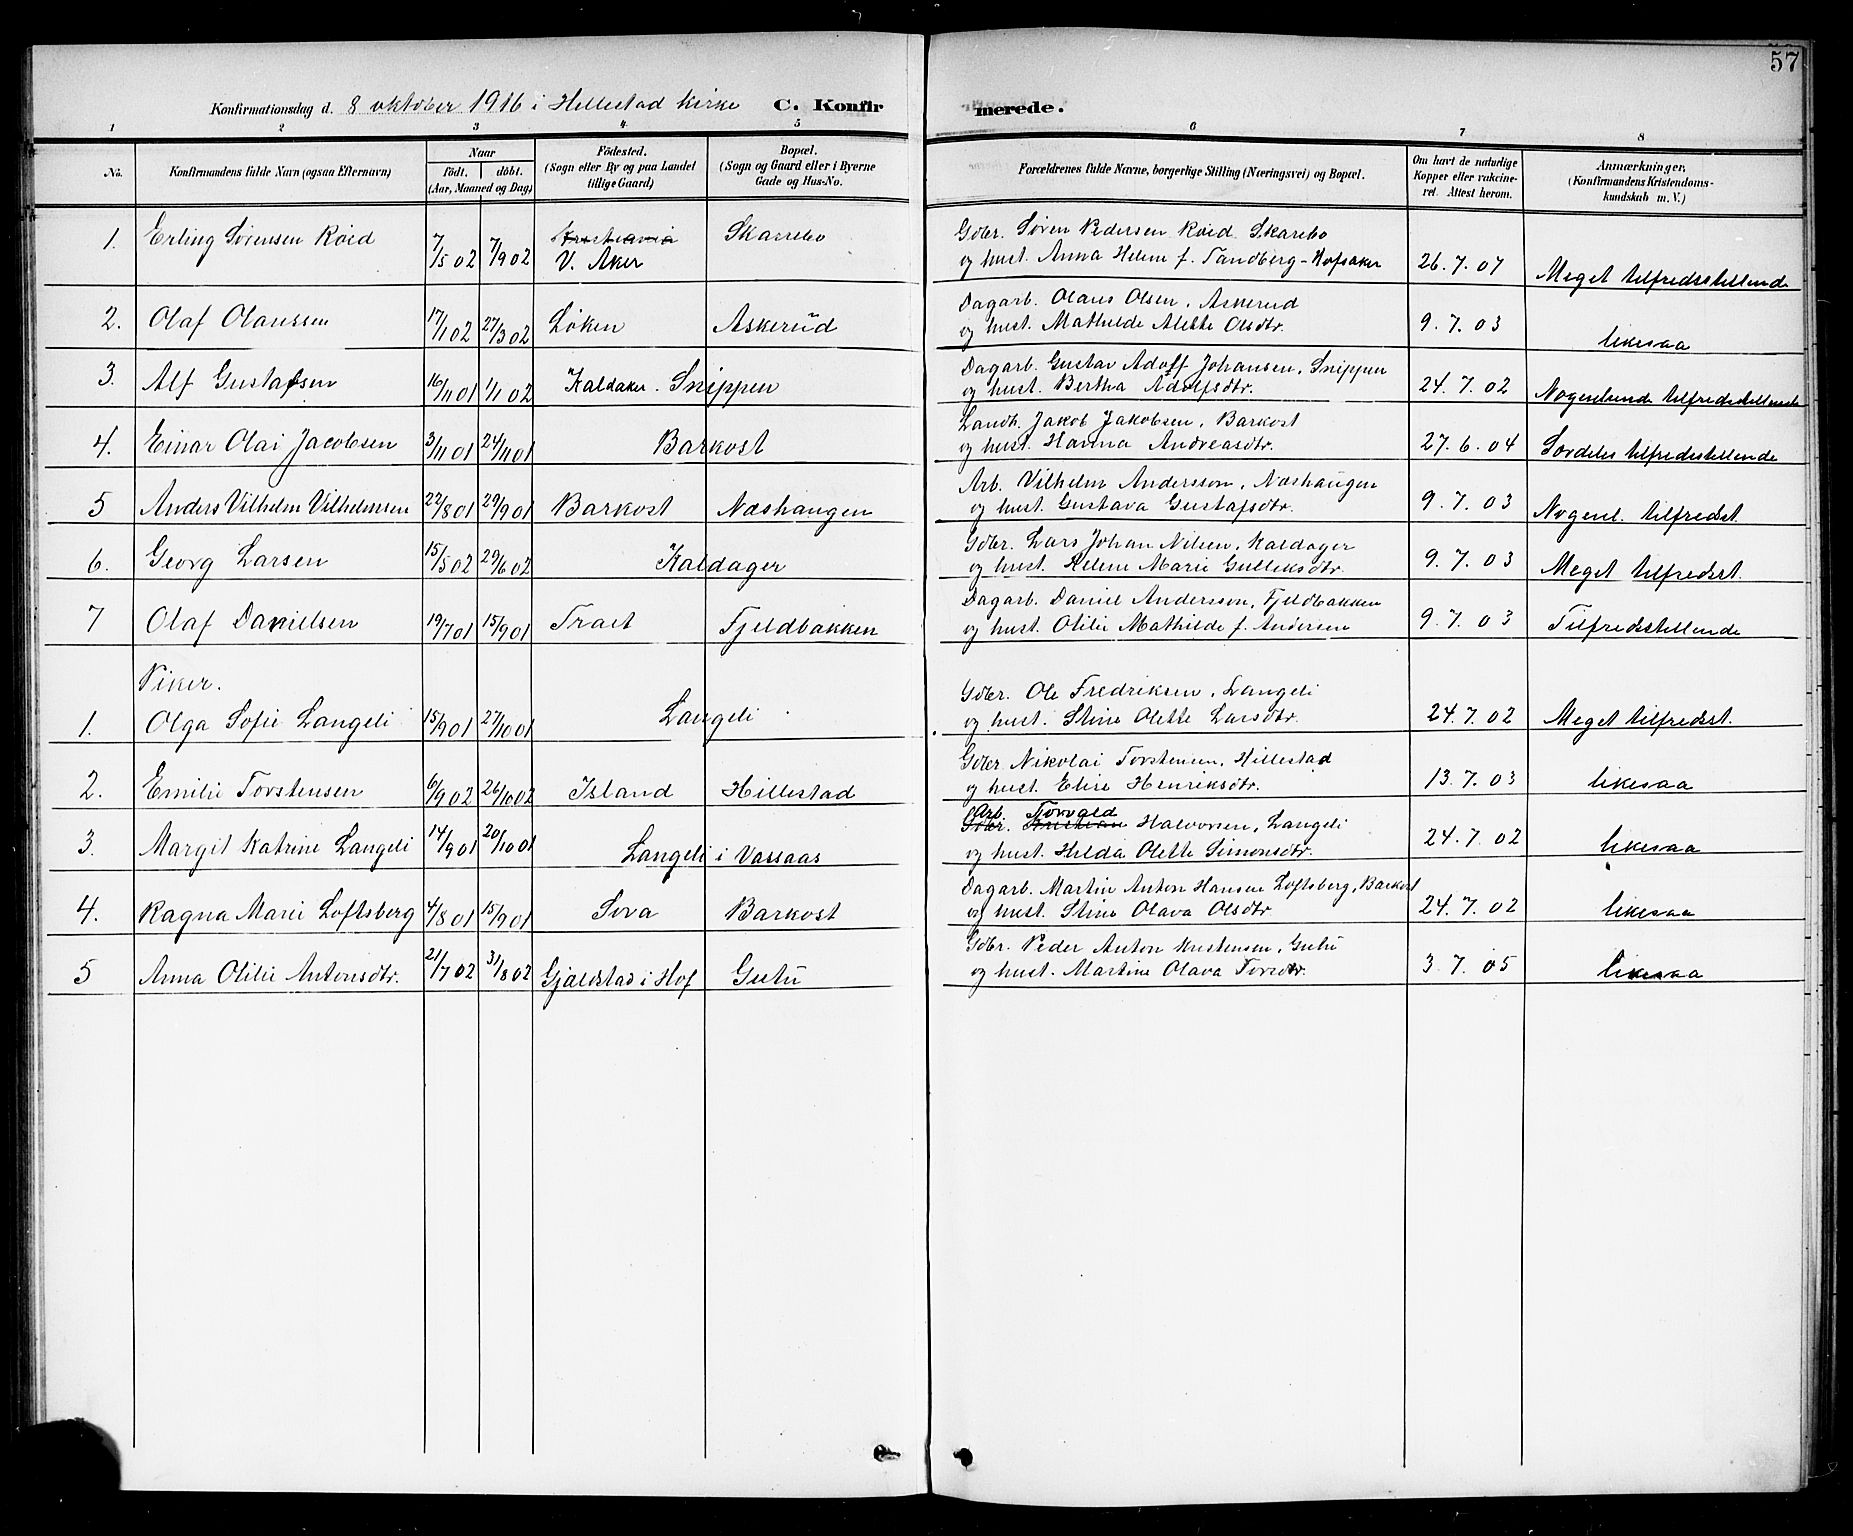 57
Konfirmationsdag d. 8 oktober 1916 i Hillestad kirke C. Konfirmerede.
1 2 3 4 5 6 7 8
No. Konfirmandens fulde Navn (ogsaa Efternavn) Naar født. døbt. (Aar, Maaned og Dag) Fødested. (Sogn eller By og paa Landet tillige Gaard) Bopæl. (Sogn og Gaard eller i Byerne Gade og Hus-No. Forældrenes fulde Navne, borgerlige Stilling (Næringsvei) og Bopæl. Om havt de naturlige Kopper eller vakcineret. Attest herom. Anmærkninger, (Konfirmandens Kristendomskundskab m. V.)
1. Erling Sørensen Røed 7/5 02 7/9 02 Kristiania V. Aker Skarrebo Gdbr. Søren Pedersen Røed Skarebo
og hust. Anna Helene f. Tandberg-Hofsaker 26. 7. 07 Meget tilfredsstillende
2. Olaf Olaussen 17/1 02 27/3 02 Løken Askerud Dagarb. Olaus Olsen, Askerud
og hust. Mathilde Alette Olsdtr. 9. 7. 03 likesaa
3. Alf Gustafsen 16/11 01 1/1 02 Kaldaker. Snippen Dagarb. Gustav Adolf Johansen, Snippen
og hust. Bertha Adolfsdtr. 24. 7. 02 Nogenlunde tilfredsstillende
4. Einar Olai Jacobsen 3/11 01 24/11 01 Barkost Landh. Jakob Jakobsen, Barkost
og hust. Hanna Andreasdtr. 27. 6. 04 Særdeles tilfredsstillende
5 Anders Vilhelm Vilhelmsen 22/8 01 29/9 01 Barkost Næshaugen Arb. Vilhelm Andersson, Næshaugen
og hust. Gustava Gustafsdtr. 9. 7. 03 Nogenl. tilfredsst.
6. Georg Larsen 15/5 02 29/6 02 Kaldager Gdbr. Lars Johan Nilsen, Kaldager
og hust. Helene Marie Gulleksdtr. 9. 7. 03 Meget tilfredsst.
7 Olaf Danielsen 19/7 01 15/9 01 Traet Fjeldbakken Dagarb. Daniel Andersson, Fjeldbakken
og hust. Otilie Mathilde f. Andersen 9. 7. 03 Tilfredsstillende
Piker.
1. Olga Sofie Langeli 15/9 01 27/10 01 Langeli Gdbr. Ole Fredriksen, Langeli
og hust. Stine Olette Larsdtr. 24. 7. 02 Meget tilfredsst.
2. Emilie Torstensen 6/9 02 26/10 02 Island Hillestad Gdbr Nikolai Torstensen, Hillestad
og hust. Elise Henriksdtr. 13. 7. 03 likesaa
3. Margit Katrine Langeli 14/9 01 20/10 01 Langeli i Vassaas Arb. Torvald
Gdbr. Kristian Halvorsen, Langeli
og hust. Hilda Olette Simonsdtr. 24. 7. 02 likesaa
4. Ragna Marie Loftsberg 4/8 01 15/9 01 Sova Barkost Dagarb. Martin Anton Hansen Loftsberg, Barkost
og hust. Stine Olava Olsdtr. 24. 7. 02 likesaa
5 Anna Otilie Antonsdtr. 21/7 02 31/8 02 Gjaldstad i Hof Gutu Gdbr. Peder Anton Kristensen, Gutu
og hust. Martine Olava Torsdtr. 3. 7. 05 likesaa